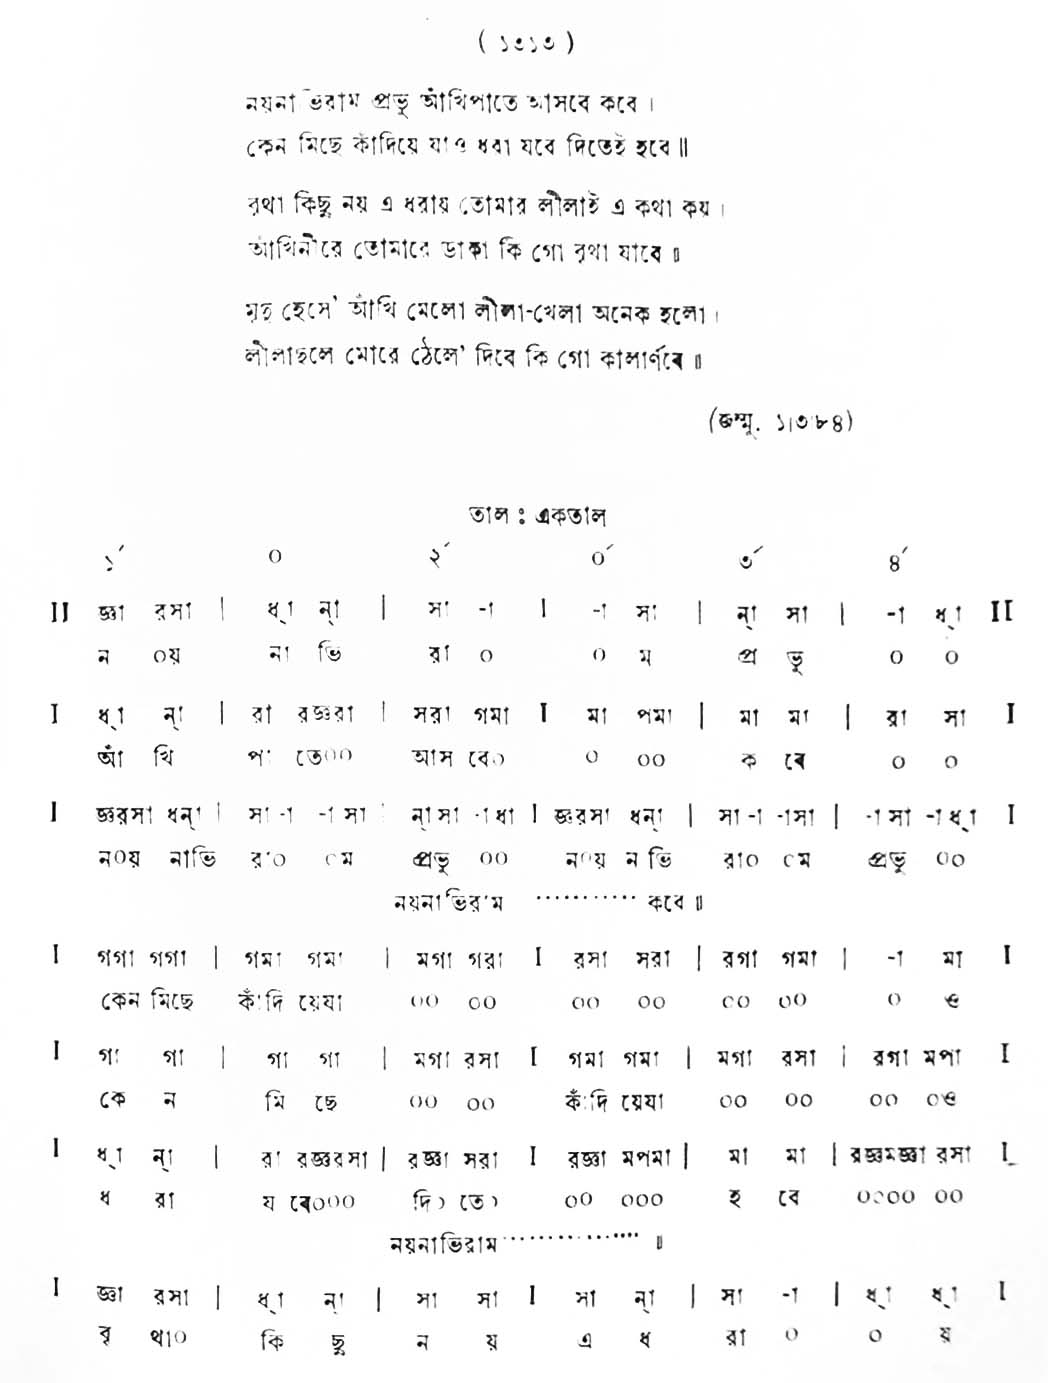 ( ১৩১৩ )
নয়নাভিরাম প্রভু আঁখিপাতে আসবে কবে ।
কেন মিছে কাঁদিয়ে যাও ধরা যবে দিতেই হবে ॥
বৃথা কিছু নয় এ ধরায় তোমার লীলাই এ কথা কয় ।
আঁখিনীরে তোমারে ডাকা কি গো বৃথা যাবে ॥
মৃদু হেসে' আঁখি মেলো লীলা-খেলা অনেক হলো ।
লীলাছলে মোরে ঠেলে' দিবে কি গো কালার্ণবে ॥
(জম্মু. ১।৩৮৪)
তাল : একতাল
১´ ০ ২´ ০´ ৩´ ৪´
II জ্ঞা রসা | ধ্‌া ন্‌া | সা -া I -া সা | ন্‌া সা | -া ধ্‌া II
ন ০য় না ভি রা ০ ০ ম প্র ভু ০ ০
I ধ্‌া ন্‌া | রা রজ্ঞরা | সরা গমা I মা পমা | মা মা | রা সা I
আঁ খি পা তে০০ আস বে০ ০ ০০ ক বে ০ ০
I জ্ঞরসা ধন্‌া | সা -া -া সা | ন্‌া সা -া ধা I জ্ঞরসা ধন্‌া | সা -া -াসা | -া সা -া ধ্‌া I
ন০য় নাভি রা০ ০ম প্রভু ০০ ন০য় নভি রা০ ০ম প্রভু ০০
নয়নাভিরাম ··········· কবে ॥
I গগা গগা | গমা গমা | মগা গরা I রসা সরা | রগা গমা | -া মা I
কেন মিছে কাঁদি য়েযা ০০ ০০ ০০ ০০ ০০ ০০ ০ ও
I গা গা | গা গা | মগা রসা I গমা গমা | মগা রসা | রগা মপা I
কে ন মি ছে ০০ ০০ কাঁদি য়েযা ০০ ০০ ০০ ০ও
I ধ্‌া ন্‌া | রা রজ্ঞরসা | রজ্ঞা সরা I রজ্ঞা মপমা | মা মা | রজ্ঞমজ্ঞা রসা I
ধ রা য বে০০০ দি০ তে০ ০০ ০০০ হ বে ০০০০ ০০
নয়নাভিরাম ··············· ॥
I জ্ঞা রসা | ধ্‌া ন্‌া | সা সা I সা ন্‌া | সা -া | ধ্‌া ধ্‌া I
বৃ থা০ কি ছু ন য় এ ধ রা ০ ০ য়